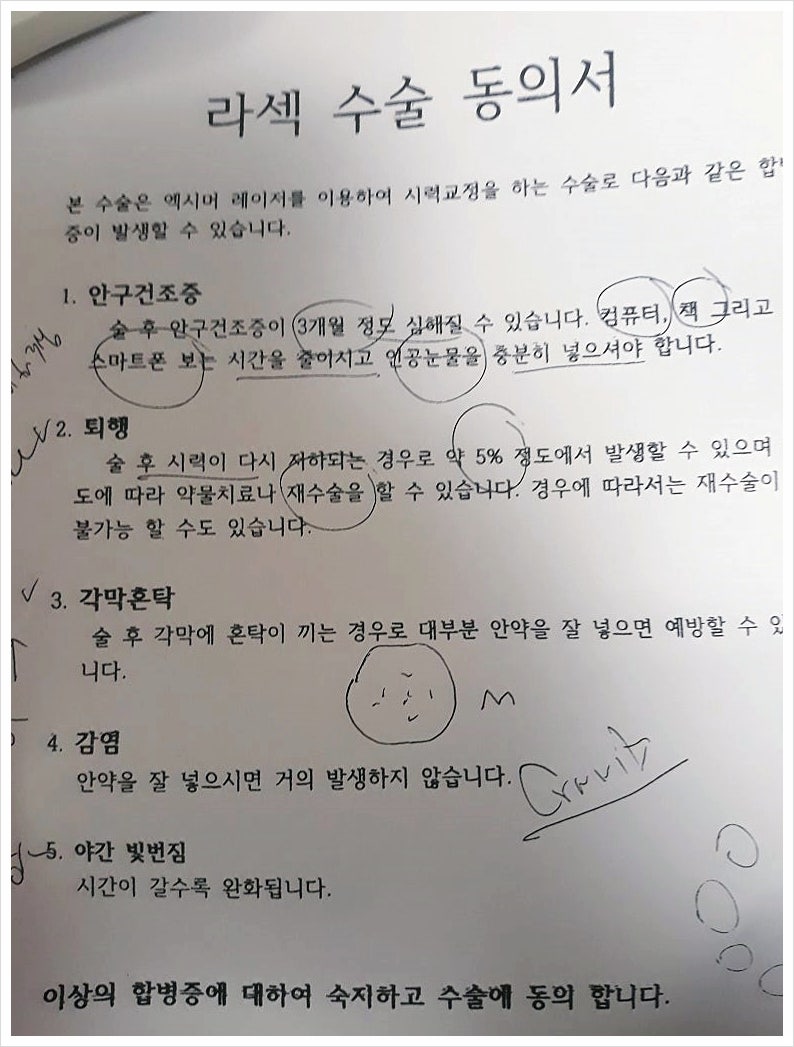 라섹 수술 동의서
본 수술은 엑시머 레이저를 이용하여 시력교정을 하는 수술로 다음과 같은 합
증이 발생할 수 있습니다.
1. 안구건조증
술 후 안구건조증이 3개월 정도 심해질 수 있습니다. 컴퓨터, 책 그리고
스마트폰 보는 시간을 줄이시고 인공눈물을 충분히 넣으셔야 합니다.
2. 퇴행
술 후 시력이 다시 저하되는 경우로 약 5% 정도에서 발생할 수 있으며
도에 따라 약물치료나 재수술을 할 수 있습니다. 경우에 따라서는 재수술이
불가능 할 수도 있습니다.
3. 각막혼탁
술 후 각막에 혼탁이 끼는 경우로 대부분 안약을 잘 넣으면 예방할 수 있
니다.
M
4. 감염
안약을 잘 넣으시면 거의 발생하지 않습니다.
Gravity
5. 야간 빛번짐
시간이 갈수록 완화됩니다.
이상의 합병증에 대하여 숙지하고 수술에 동의 합니다.